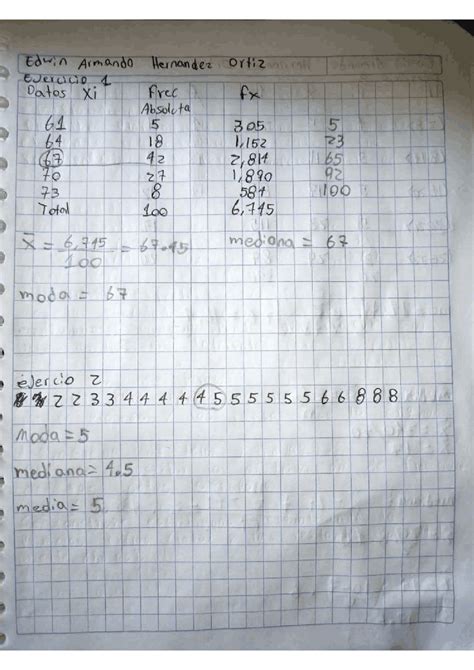 Edwin Armando Hernandez Ortiz
Ejercicio 1
Datos Xi Frec fx
Absoluta
61 5 305 5
64 18 1,152 23
67 42 2,814 65
70 27 1,890 92
73 8 584 100
Total 100 6,745
X̄ = 6,745 / 100 = 67.45 mediana = 67
moda = 67
ejercio 2
2 2 3 3 4 4 4 4 4 5 5 5 5 5 5 6 6 8 8 8
Moda = 5
mediana = 4.5
media = 5